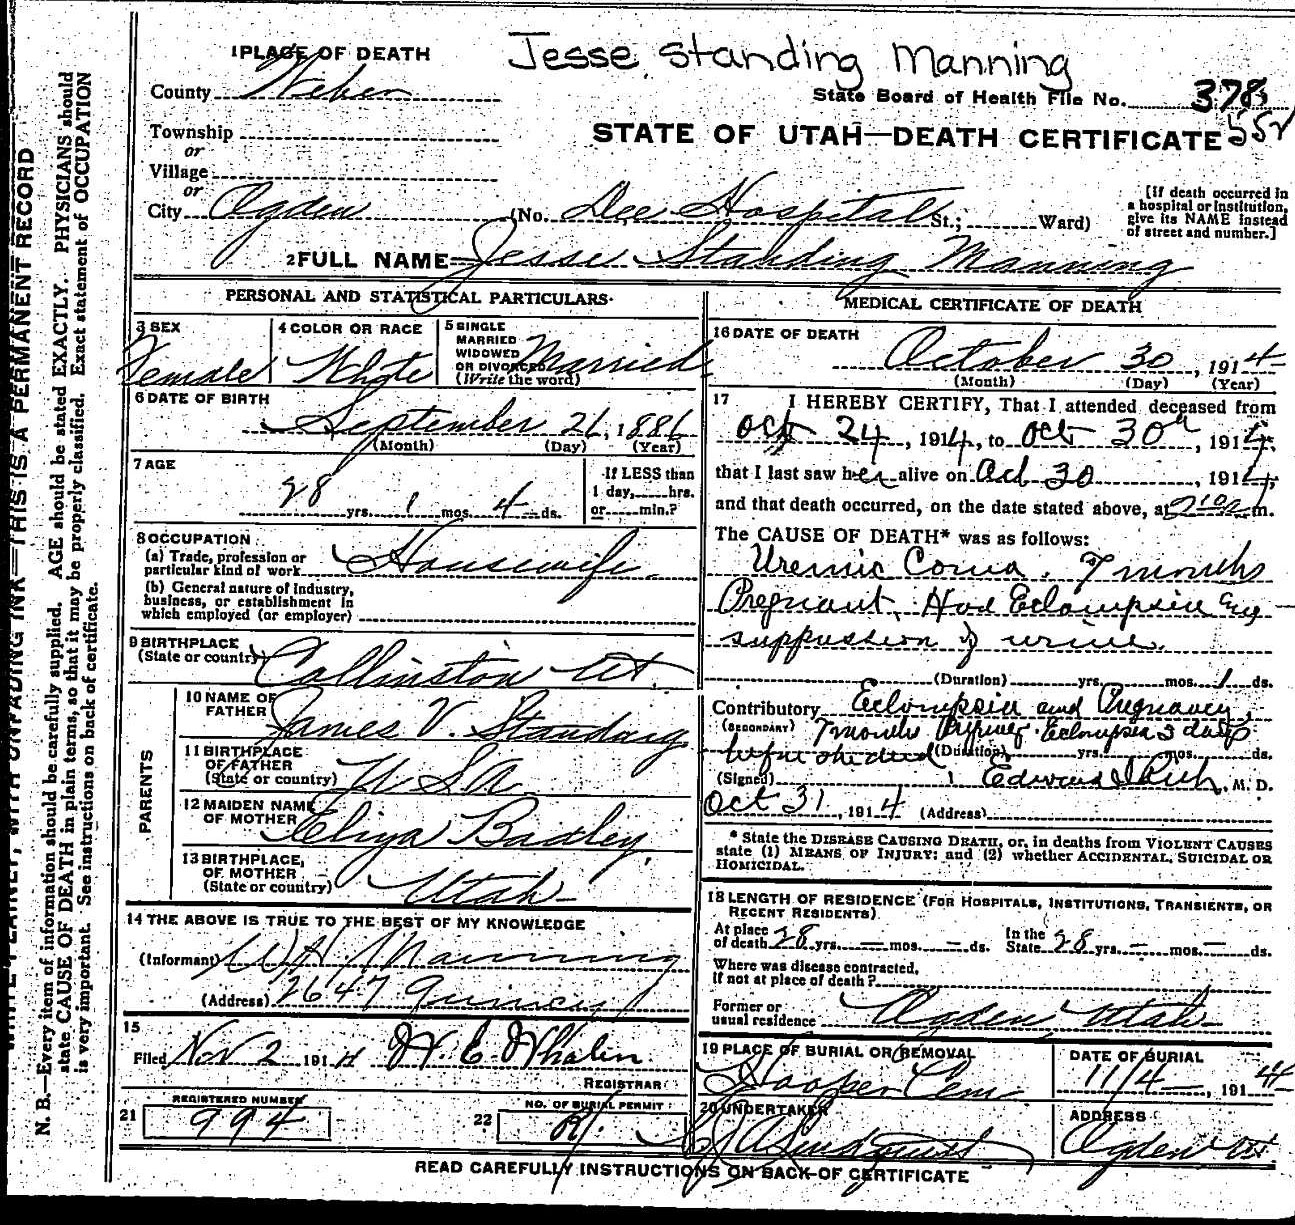 Jesse Standing Manning
1 PLACE OF DEATH
County Weber
State Board of Health File No. 378
552
STATE OF UTAH—DEATH CERTIFICATE
Township
or
Village
or
City Ogden (No. Dee Hospital St.; Ward)
[If death occurred in
a hospital or institution,
give its NAME instead
of street and number.]
2 FULL NAME Jesse Standing Manning
PERSONAL AND STATISTICAL PARTICULARS
3 SEX
Female
4 COLOR OR RACE
White
5 SINGLE
MARRIED
WIDOWED
OR DIVORCED
(Write the word)
Married
6 DATE OF BIRTH
September 26, 1886
(Month) (Day) (Year)
7 AGE
28 yrs. 1 mos. 4 ds.
If LESS than
1 day, hrs.
or min.?
8 OCCUPATION
(a) Trade, profession or
particular kind of work Housewife
(b) General nature of industry,
business, or establishment in
which employed (or employer)
9 BIRTHPLACE
(State or country) Collinston Ut.
PARENTS
10 NAME OF
FATHER James V. Standing
11 BIRTHPLACE
OF FATHER
(State or country) U S A
12 MAIDEN NAME
OF MOTHER Eliza Badley
13 BIRTHPLACE
OF MOTHER
(State or country) Utah
14 THE ABOVE IS TRUE TO THE BEST OF MY KNOWLEDGE
(Informant) W H Manning
(Address) 2647 Quincy
15
Filed Nov 2 1914 H. E. Whalin
REGISTRAR
21 REGISTERED NUMBER
994
22 NO. OF BURIAL PERMIT
MEDICAL CERTIFICATE OF DEATH
16 DATE OF DEATH
October 30, 1914
(Month) (Day) (Year)
17 I HEREBY CERTIFY, That I attended deceased from
Oct 24, 1914, to Oct 30, 1914,
that I last saw her alive on Oct 30, 1914,
and that death occurred, on the date stated above, at 2 m.
The CAUSE OF DEATH* was as follows:
Uremic Coma. 7 months
Pregnant. Had Eclampsia
suppression of urine.
(Duration) yrs. mos. 1 ds.
Contributory Eclampsia and Pregnancy
(SECONDARY) 7 months Eclampsia 3 days
before she died (Duration) yrs. mos. ds.
(Signed) Edward I Rich, M. D.
Oct 31, 1914 (Address)
* State the DISEASE CAUSING DEATH, or, in deaths from VIOLENT CAUSES
state (1) MEANS OF INJURY: and (2) whether ACCIDENTAL, SUICIDAL OR
HOMICIDAL.
18 LENGTH OF RESIDENCE (FOR HOSPITALS, INSTITUTIONS, TRANSIENTS, OR
RECENT RESIDENTS)
At place
of death 28 yrs. — mos. — ds. In the
State 28 yrs. — mos. — ds.
Where was disease contracted,
If not at place of death?
Former or
usual residence Ogden Utah
19 PLACE OF BURIAL OR REMOVAL
Hooper Cem
DATE OF BURIAL
11/4, 1914
20 UNDERTAKER
Lindquist
ADDRESS
Ogden Ut.
READ CAREFULLY INSTRUCTIONS ON BACK OF CERTIFICATE
WRITE PLAINLY, WITH UNFADING INK—THIS IS A PERMANENT RECORD
N. B.—Every item of information should be carefully supplied. AGE should be stated EXACTLY. PHYSICIANS should
state CAUSE OF DEATH in plain terms, so that it may be properly classified. Exact statement of OCCUPATION
is very important. See instructions on back of certificate.